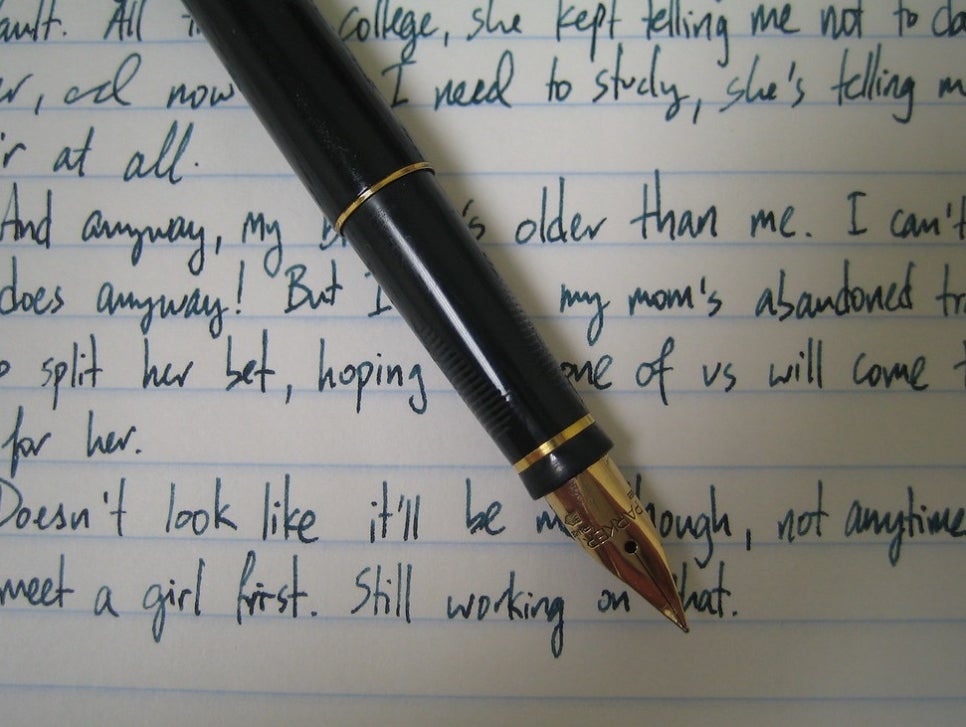 ault. All college, she kept telling me not to da
er, and now I need to study, she's telling m
ir at all.
And anyway, my b 's older than me. I can't
does anyway! But I my mom's abandoned tr
o split her bet, hoping one of us will come t
for her.
Doesn't look like it'll be m though, not anytime
meet a girl first. Still working on that.
PARKER